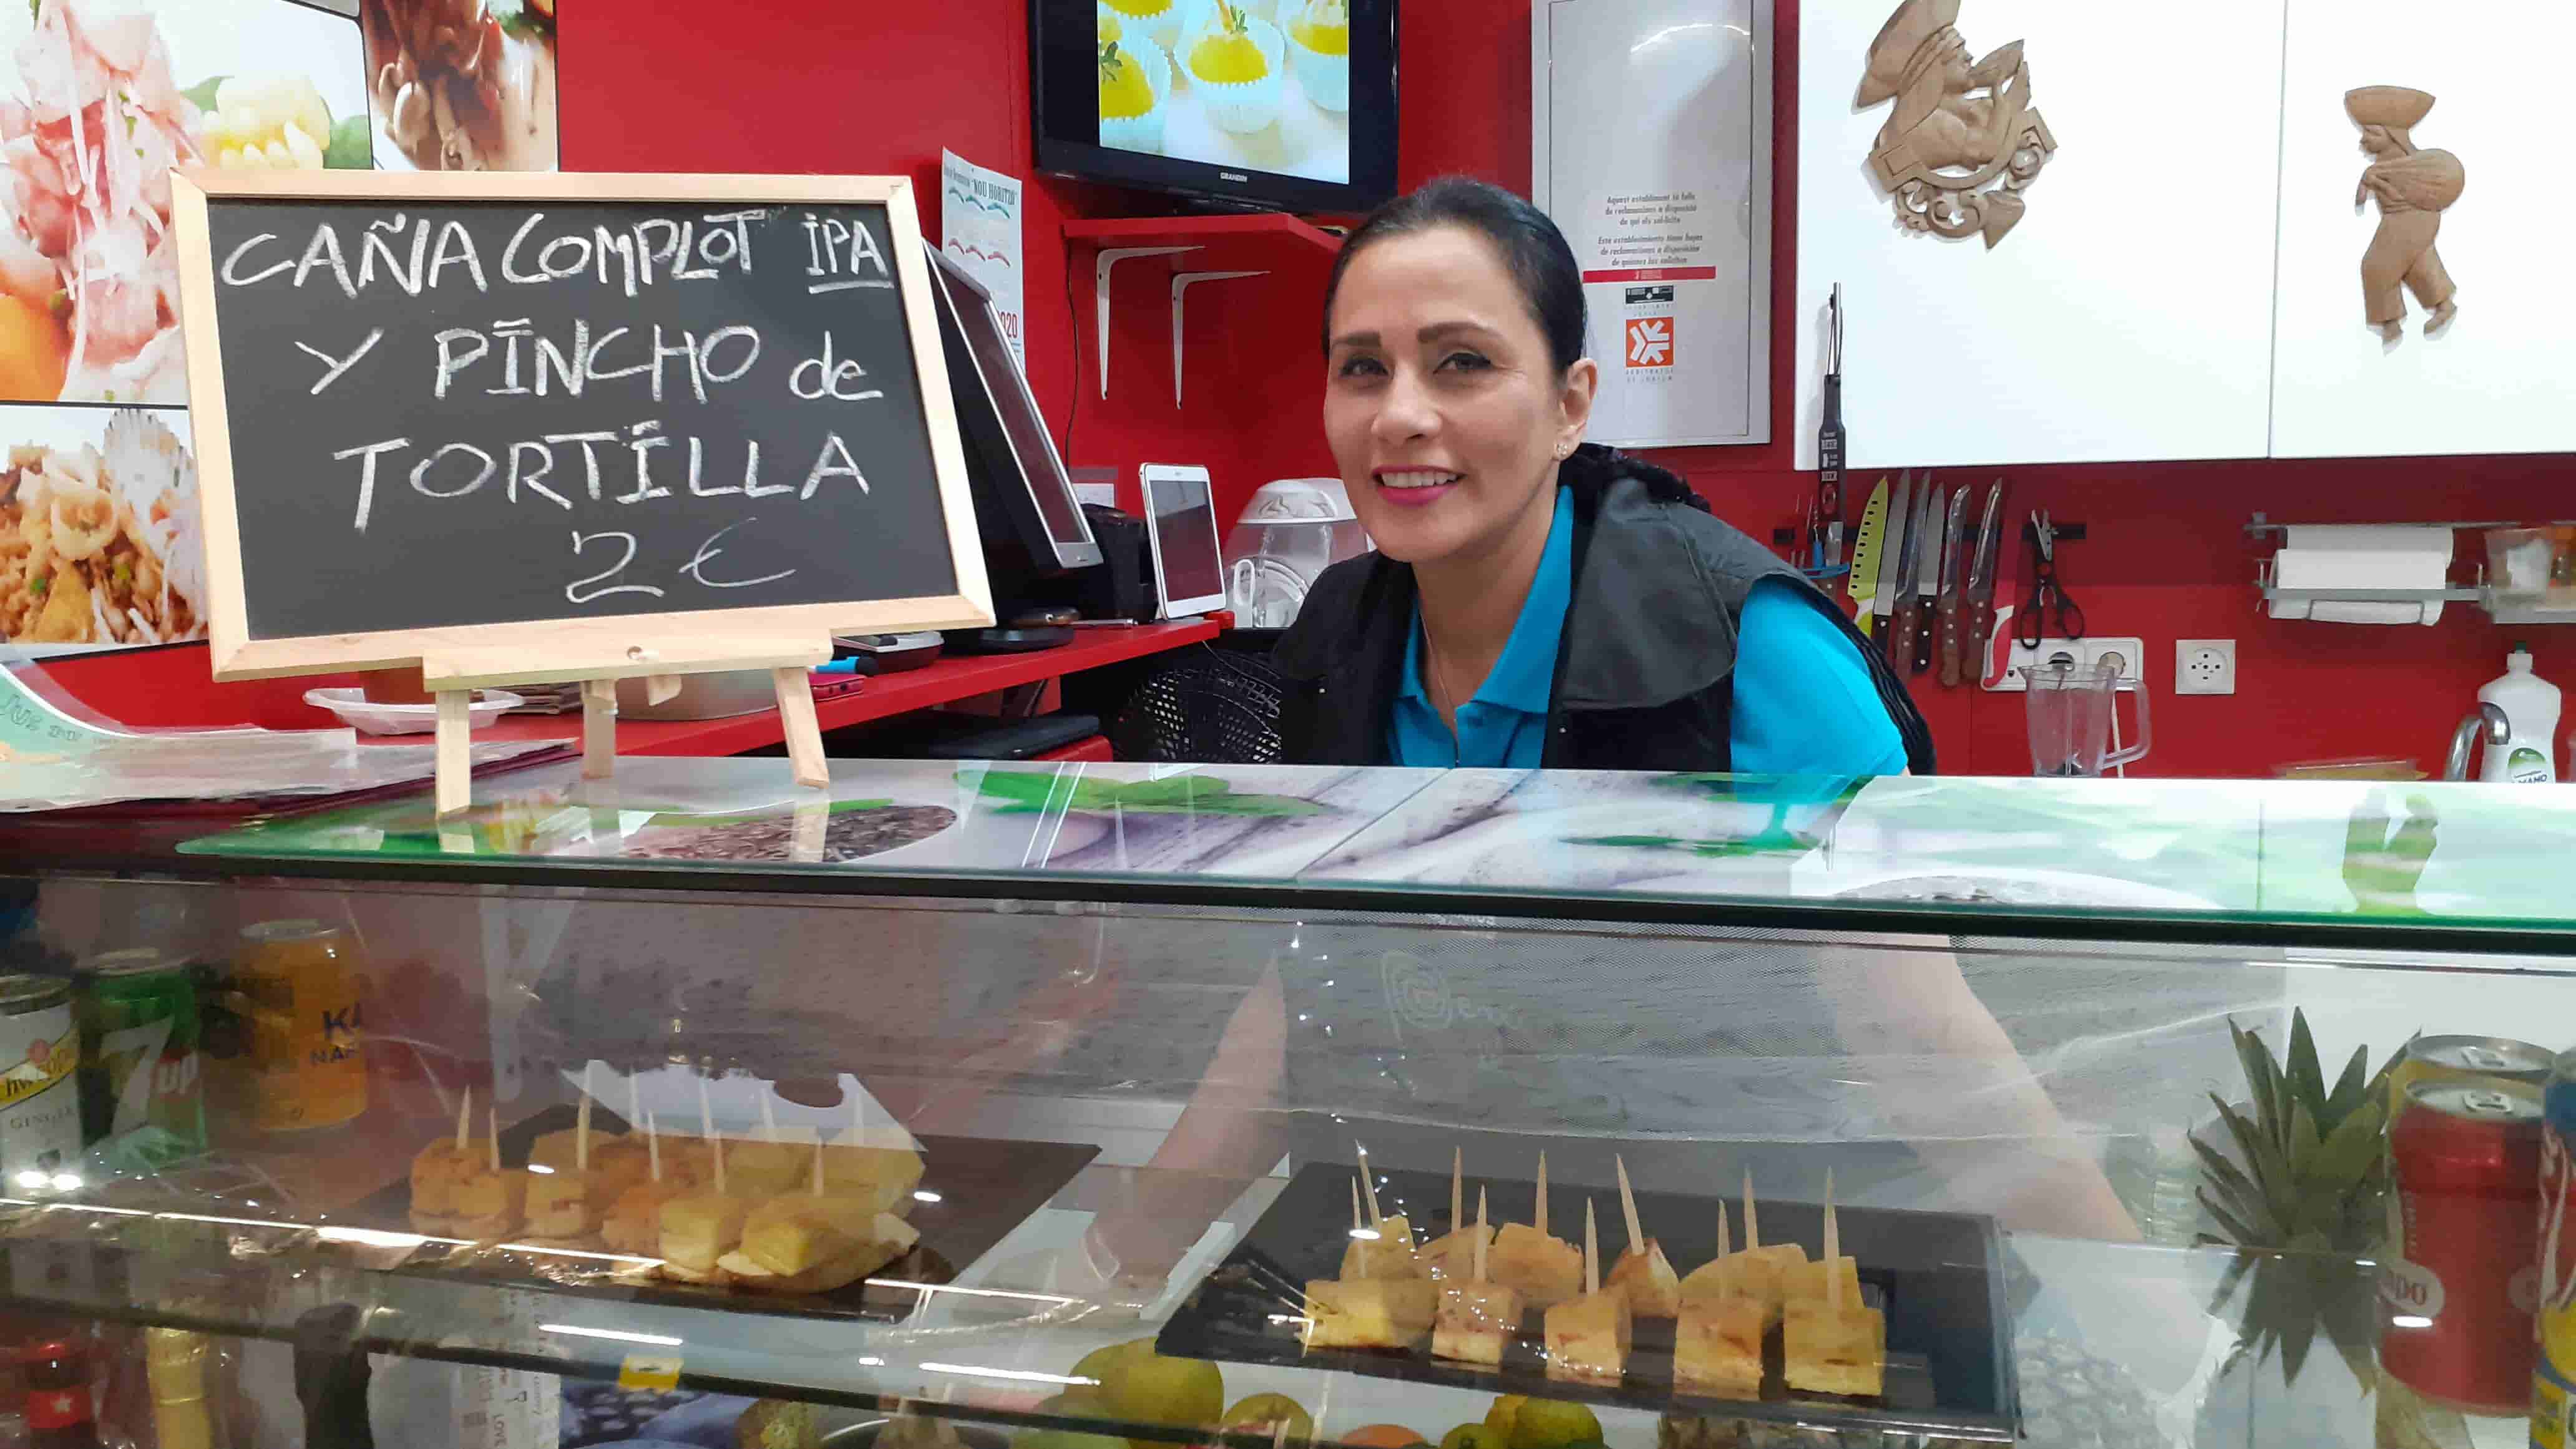 CAÑA COMPLOT IPA
Y PINCHO de
TORTILLA
2€
"NOU HORITZÓ"
GRUNDIN
Aquest establiment té fulls
de reclamacions a disposició
de qui els sol·liciti
Este establecimiento tiene hojas
de reclamaciones a disposición
de quienes las soliciten
ARBITRATGE
DE CONSUM
7up
KA
NA
GINGER